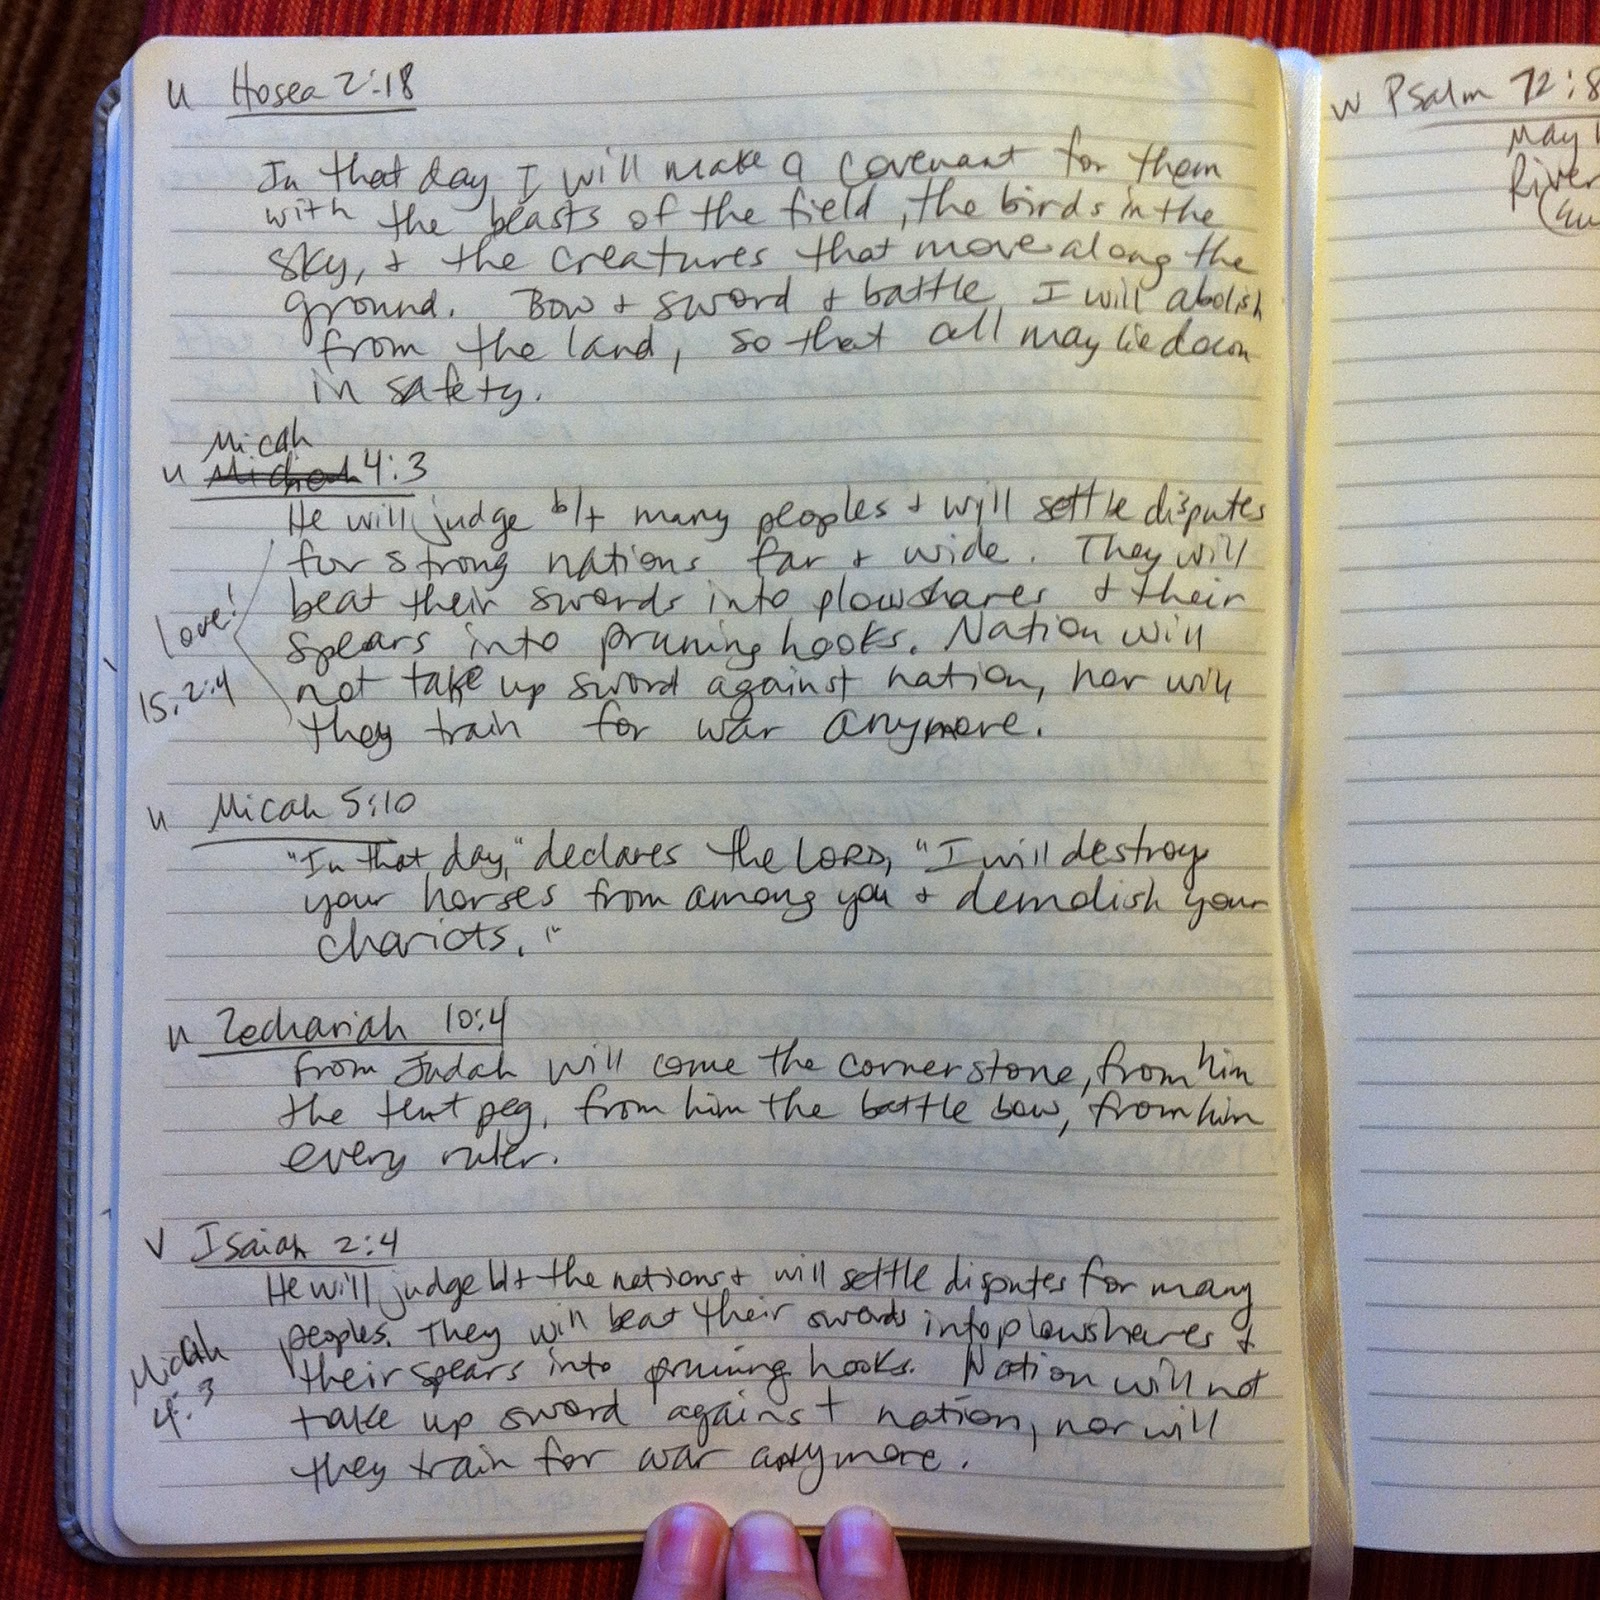 u Hosea 2:18
In that day I will make a covenant for them
with the beasts of the field, the birds in the
sky, + the creatures that move along the
ground. Bow + sword + battle I will abolish
from the land, so that all may lie down
in safety.
Micah
u 4:3
He will judge b/t many peoples + will settle disputes
for strong nations far + wide. They will
beat their swords into plowshares + their
spears into pruning hooks. Nation will
not take up sword against nation, nor will
they train for war anymore.
Love!
Is. 2:4
u Micah 5:10
"In that day," declares the LORD, "I will destroy
your horses from among you + demolish your
chariots."
u Zechariah 10:4
From Judah will come the cornerstone, from him
the tent peg, from him the battle bow, from him
every ruler.
v Isaiah 2:4
He will judge b/t the nations + will settle disputes for many
peoples. They will beat their swords into plowshares +
their spears into pruning hooks. Nation will not
take up sword against nation, nor will
they train for war anymore.
Micah
4:3
w Psalm 72:8
May
River